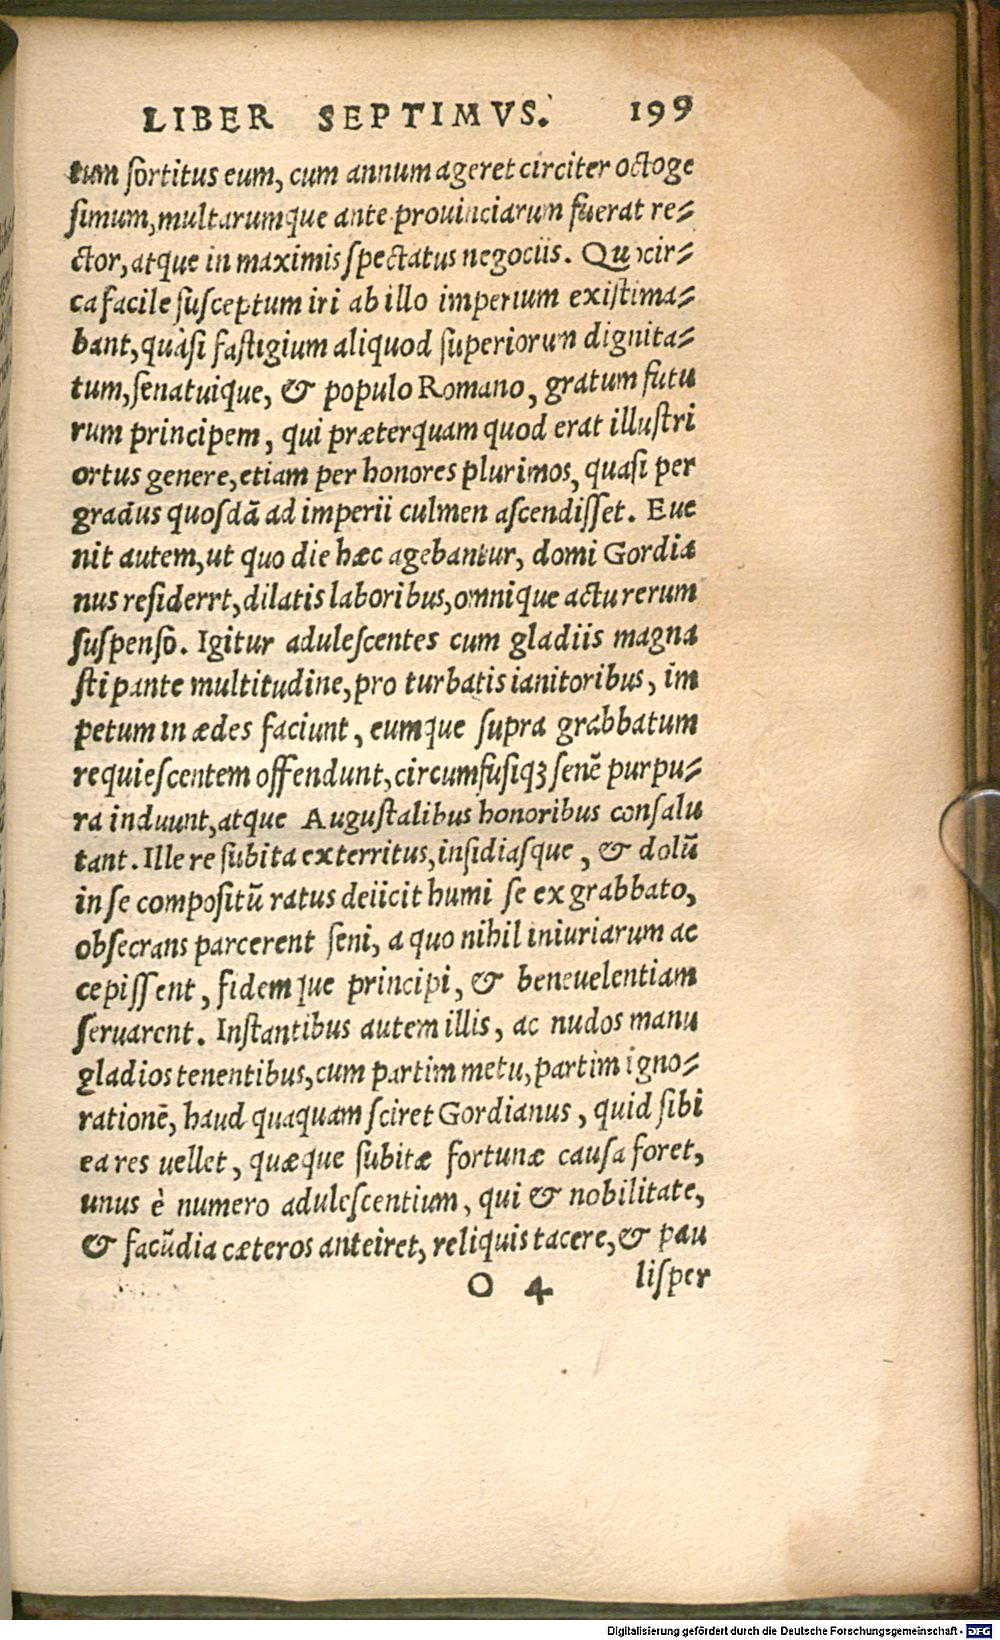 LIBER SEPTIMVS. 199
tum sortitus eum, cum annum ageret circiter octoge
simum, multarumque ante prouinciarum fuerat re⸗
ctor, atque in maximis spectatus negociis. Quocir⸗
ca facile susceptum iri ab illo imperium existima⸗
bant, quasi fastigium aliquod superiorum dignita⸗
tum, senatuique, & populo Romano, gratum futu
rum principem, qui præterquam quod erat illustri
ortus genere, etiam per honores plurimos, quasi per
gradus quosdā ad imperii culmen ascendisset. Eue
nit autem, ut quo die hæc agebantur, domi Gordia
nus residerrt, dilatis laboribus, omnique actu rerum
suspenso. Igitur adulescentes cum gladiis magna
stipante multitudine, pro turbatis ianitoribus, im
petum in ædes faciunt, eumque supra grabbatum
requiescentem offendunt, circumfusiqꝫ senē purpu⸗
ra induunt, atque Augustalibus honoribus consalu
tant. Ille re subita exterritus, insidiasque, & dolū
in se compositū ratus deiicit humi se ex grabbato,
obsecrans parcerent seni, a quo nihil iniuriarum ac
cepissent, fidemque principi, & beneuelentiam
seruarent. Instantibus autem illis, ac nudos manu
gladios tenentibus, cum partim metu, partim igno⸗
rationē, haud quaquam sciret Gordianus, quid sibi
ea res uellet, quæque subitæ fortunæ causa foret,
unus è numero adulescentium, qui & nobilitate,
& facūdia cæteros anteiret, reliquis tacere, & pau
O 4 lisper
Digitalisierung gefördert durch die Deutsche Forschungsgemeinschaft - DFG